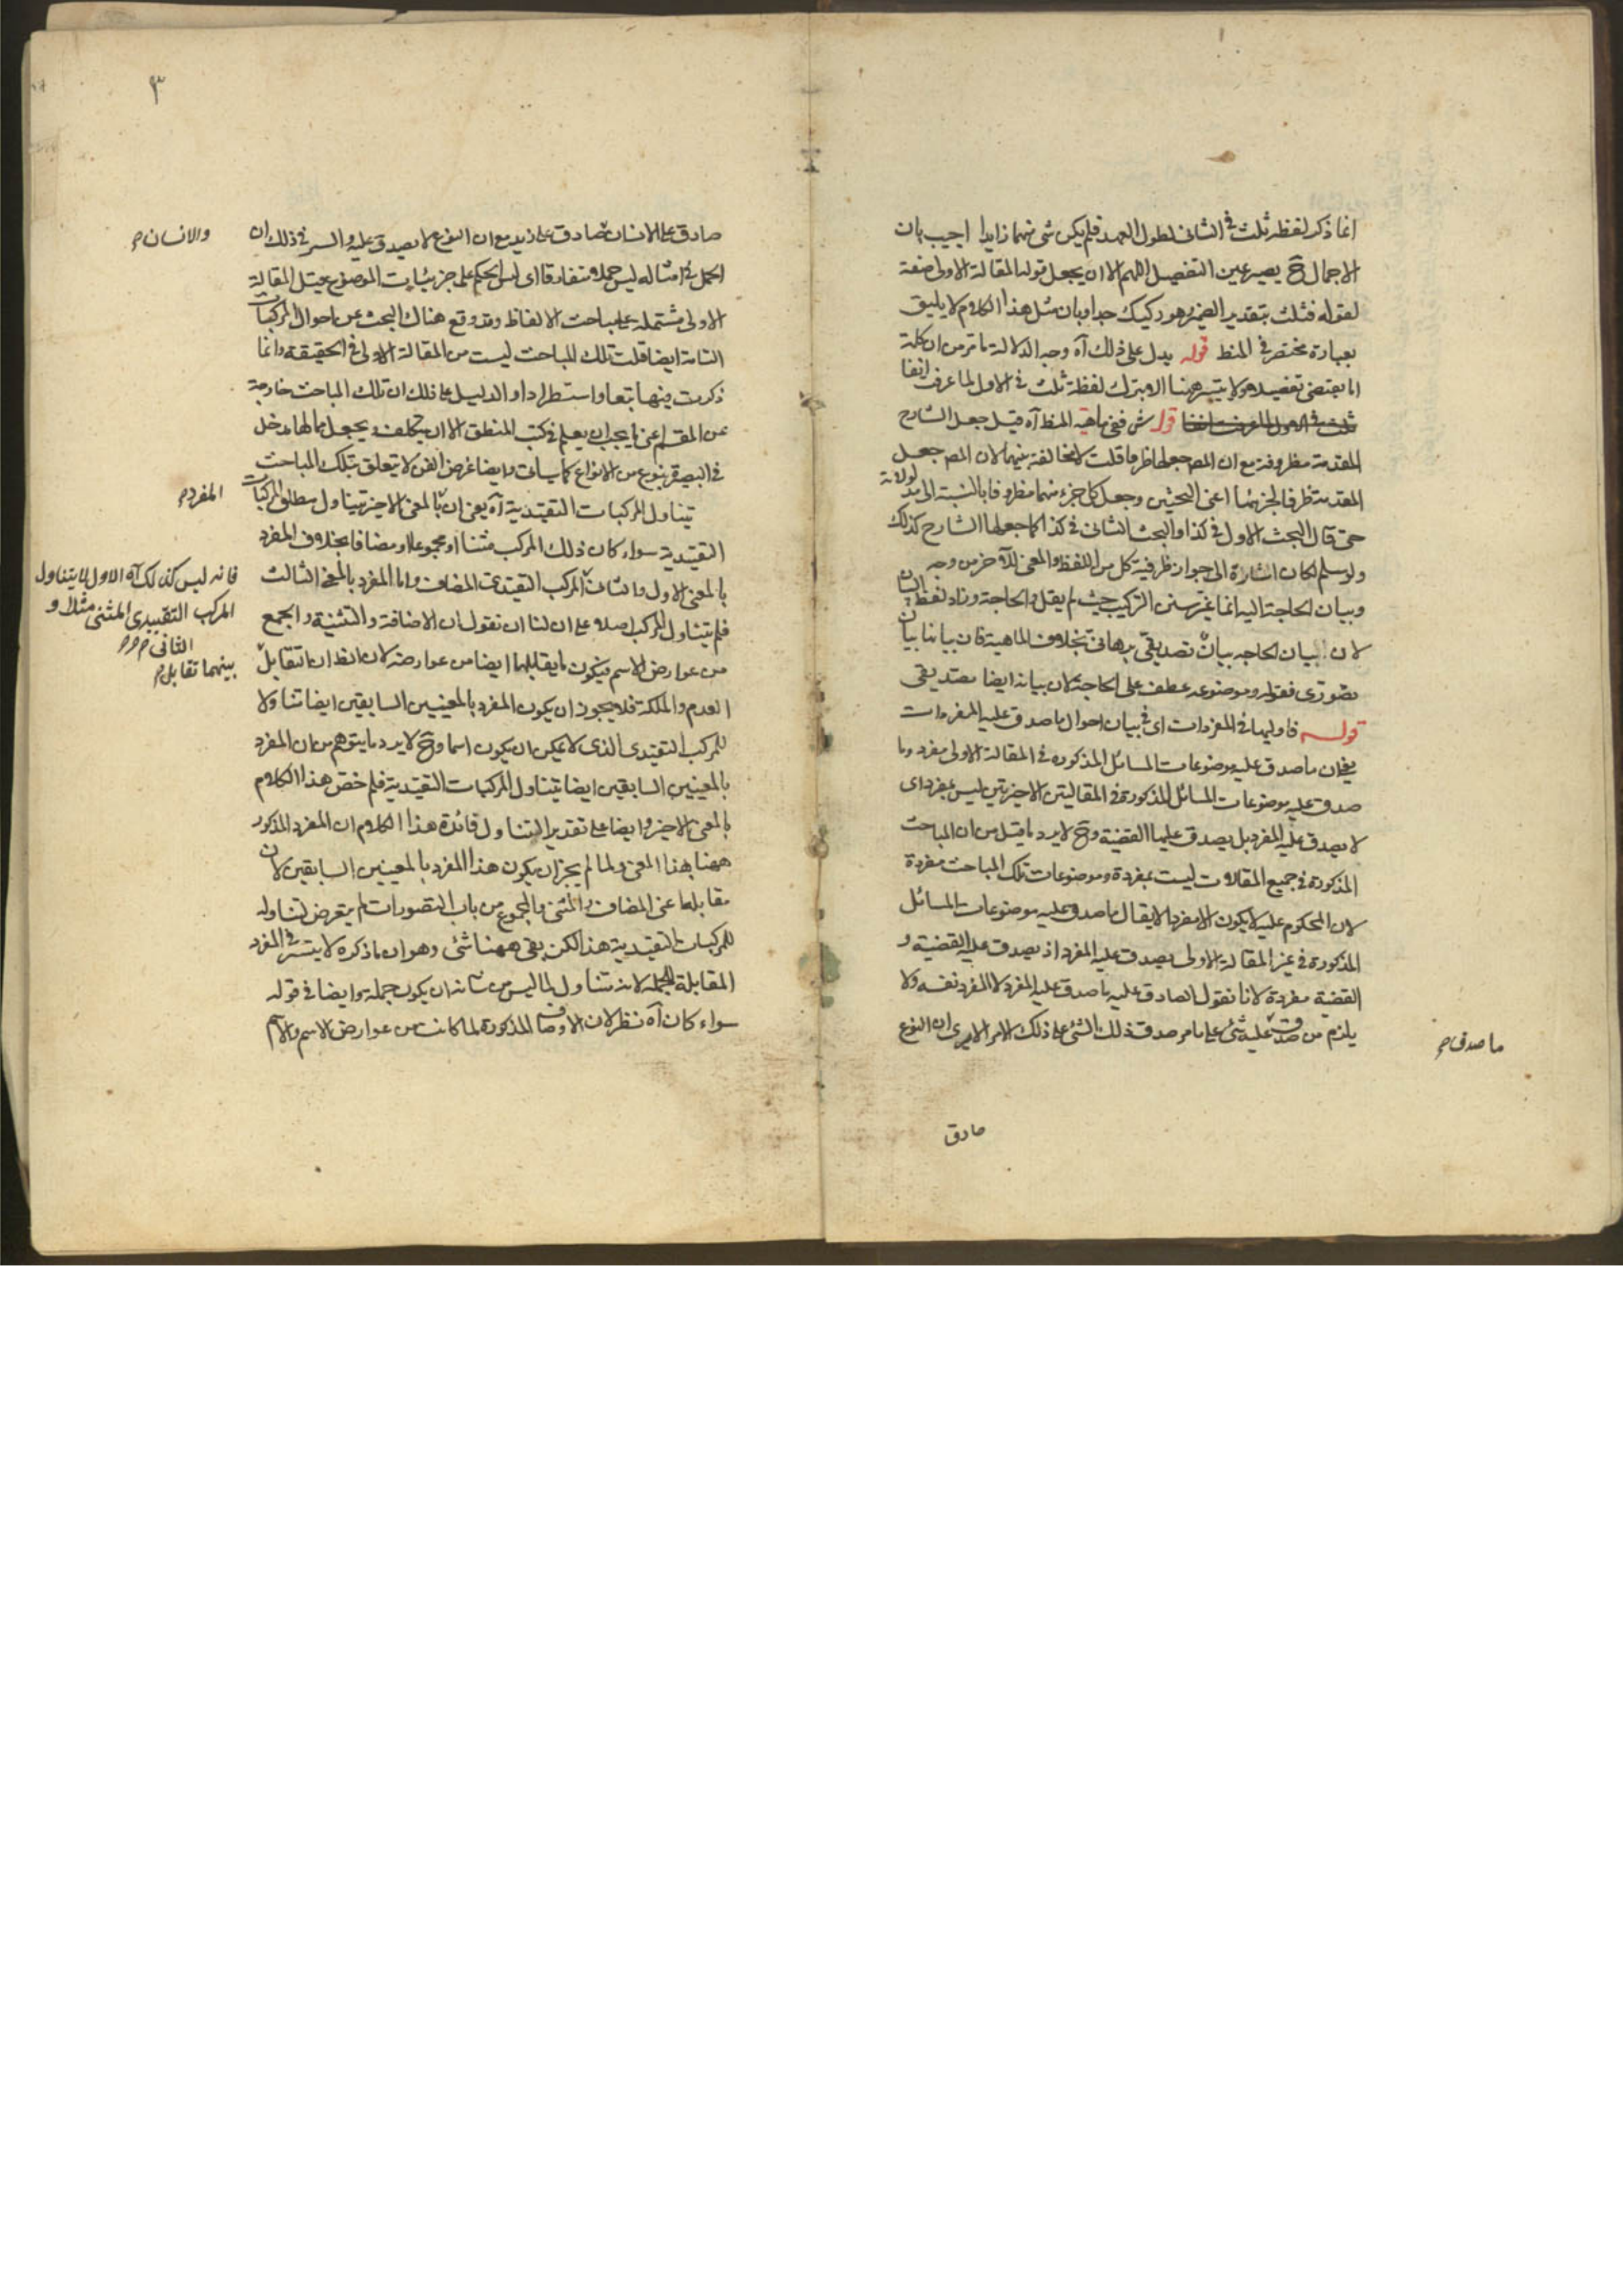 انما ذكر لفظه ثلث في الثاني لطول العهد فلم يكن شئ منهما زايدا اجيب بان
الاجمال ح يصير عين التفصيل اللهم الا ان يجعل قوله المقالة الاولى صفة
لقوله فثلث بتقدير الضمير وهو ركيك جدا وبان مثل هذا الكلام لا يليق
بعبارة مختصر في المنط قوله يدل على ذلك آه وجه الدلالة ما مر من ان كلمة
اما يقتضي تفصيله وهو لا يتيسر ههنا الا بترك لفظة ثلث في الاول لما عرفت انفا
قوله ش ففي ماهية المنط آه قيل جعل الشارح
المقدمة مظروفة مع ان المص جعلها ظرفا قلت لا مخالفة بينهما لان المص جعل
المقدمة ظرفا لجزئها اعني البحثين وجعل كل جزء منهما مظروفا بالنسبة الى مدلولاته
حتى قال البحث الاول في كذا والبحث الثاني في كذا كما جعلها الشارح كذلك
ولو سلم لكان اشارة الى جواز ظرفية كل من اللفظ والمعنى للآخر من وجه
وبيان الحاجة اليه انما غير سنن التركيب حيث لم يقل والحاجة وزاد لفظ البيان
لان بيان الحاجه بيان تصديقي برهاني بخلاف الماهية فان بيانها بيان
تصوري فقوله وموضوعه عطف على الحاجة لان بيانه ايضا تصديقي
قوله فاوليها في المفردات اى في بيان احوال ما صدق عليه المفردات
يعني ان ما صدق عليه موضوعات المسائل المذكوره في المقالة الاولى مفرد وما
صدق عليه موضوعات المسائل المذكورة في المقاليتن الاخيرتين ليس بمفرد اى
لا يصدق عليه المفرد بل يصدق عليها القضية وح لا يرد ما قيل من ان المباحث
المذكورة في جميع المقالات ليست بمفردة وموضوعات تلك المباحث مفردة
لان المحكوم عليه لا يكون الا مفردا لا يقال ما صدق عليه موضوعات المسائل
المذكورة في غير المقالة الاولى يصدق عليه المفرد اذ يصدق عليه القضية و
القضية مفردة لانا نقول الصادق عليه ما صدق عليه المفرد لا المفرد نفسه ولا
يلزم من صدق ما صدق عليه شئ على امر صدق ذلك الشئ على ذلك الامر الا يرى ان النوع
ما صدق
صادق
٣
صادق على الانسان والانسان صادق على زيد مع ان النوع لا يصدق عليه والسر في ذلك ان
الحمل في امثاله ليس حملا متعارفا اى ليس الحكم على جزئيات الموضوع قيل المقالة
الاولى مشتمله على مباحث الالفاظ وقد وقع هناك البحث عن احوال المركبات
التامة ايضا قلت تلك المباحث ليست من المقالة الاولى في الحقيقة وانما
ذكرت فيها تبعا واستطرادا والدليل على ذلك ان تلك المباحث خارجة
عن المقسم اعني ما يجب ان يعلم في كتب المنطق الا ان يتكلف ويجعل مما لها مدخل
في البصيرة بنوع من الانواع كما سيأتى وايضا غرض الفن لا يتعلق بتلك المباحث
يتناول المركبات التقيدية آه يعني ان المفرد بالمعنى الاخير يتناول مطلق المركبات
التقيدية سواء كان ذلك المركب مثنا او مجموعا او مضافا بخلاف المفرد
بالمعنى الاول فانه ليس كذلك اذ الاول لا يتناول المركب التقييدى المثنى مثلا والثانى المركب التقيدى المضاف واما المفرد بالمعنى الثالث
فلم يتناول المركب اصلا على ان لنا ان نقول ان الاضافة والتثنية والجمع
من عوارض الاسم فيكون ما يقابلها ايضا من عوارضه لان الظ ان بينهما تقابل
العدم والملكة فلا يجوز ان يكون المفرد بالمعنيين السابقين ايضا متناولا
للمركب التقيدى الذى لا يمكن ان يكون اسما وح لا يرد ما يتوهم من ان المفرد
بالمعنيين السابقين ايضا يتناول المركبات التقيدية فلم خص هذا الكلام
بالمعنى الاخير وايضا على تقدير التناول فائدة هذا الكلام ان المفرد المذكور
ههنا بهذا المعنى ولما لم يجز ان يكون هذا المفرد بالمعنيين السابقين لان
مقابلها اعنى المضاف والمثنى والمجموع من باب التصورات لم يتعرض لتناوله
للمركبات التقيدية هذا لكن بقى ههنا شئ وهو ان ما ذكره لا يتيسر في المفرد
المقابلة للجملة لانه يتناول لما ليس من شأنه ان يكون جملة وايضا في قوله
سواء كان آه نظر لان الاوصاف المذكورة لما كانت من عوارض الاسم والاسم